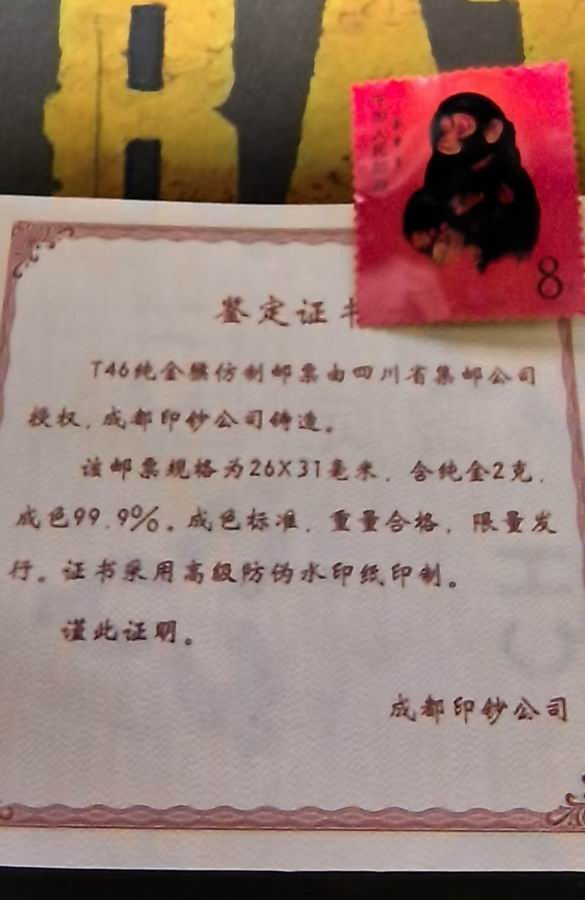 8
鉴定证书
T46纯金猴仿制邮票由四川省集邮公司
授权,成都印钞公司铸造。
该邮票规格为26X31毫米,含纯金2克,
成色99.9%。成色标准,重量合格,限量发
行。证书采用高级防伪水印纸印制。
谨此证明。
成都印钞公司